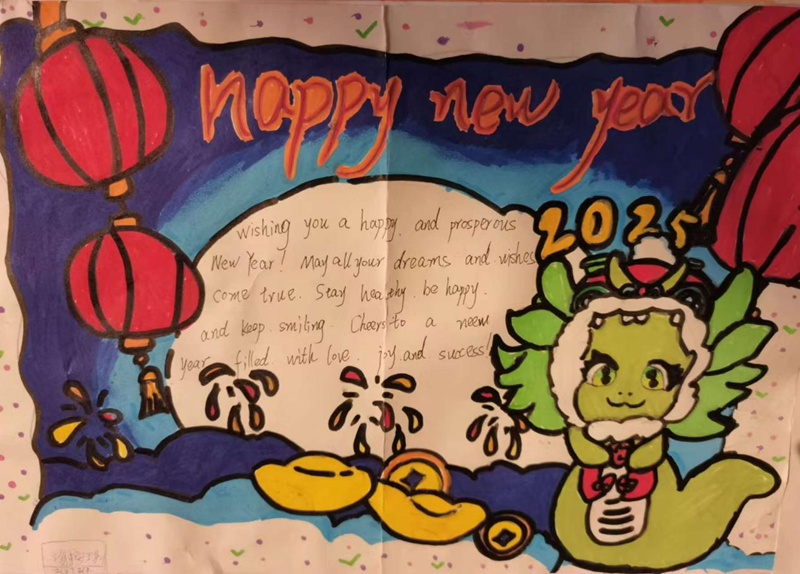 happy new year
2025
Wishing you a happy. and prosperous
New Year! May all your dreams and wishes
come true. Stay healthy. be happy.
and keep smiling. Cheers to a neew
year filled with love. joy. and success!